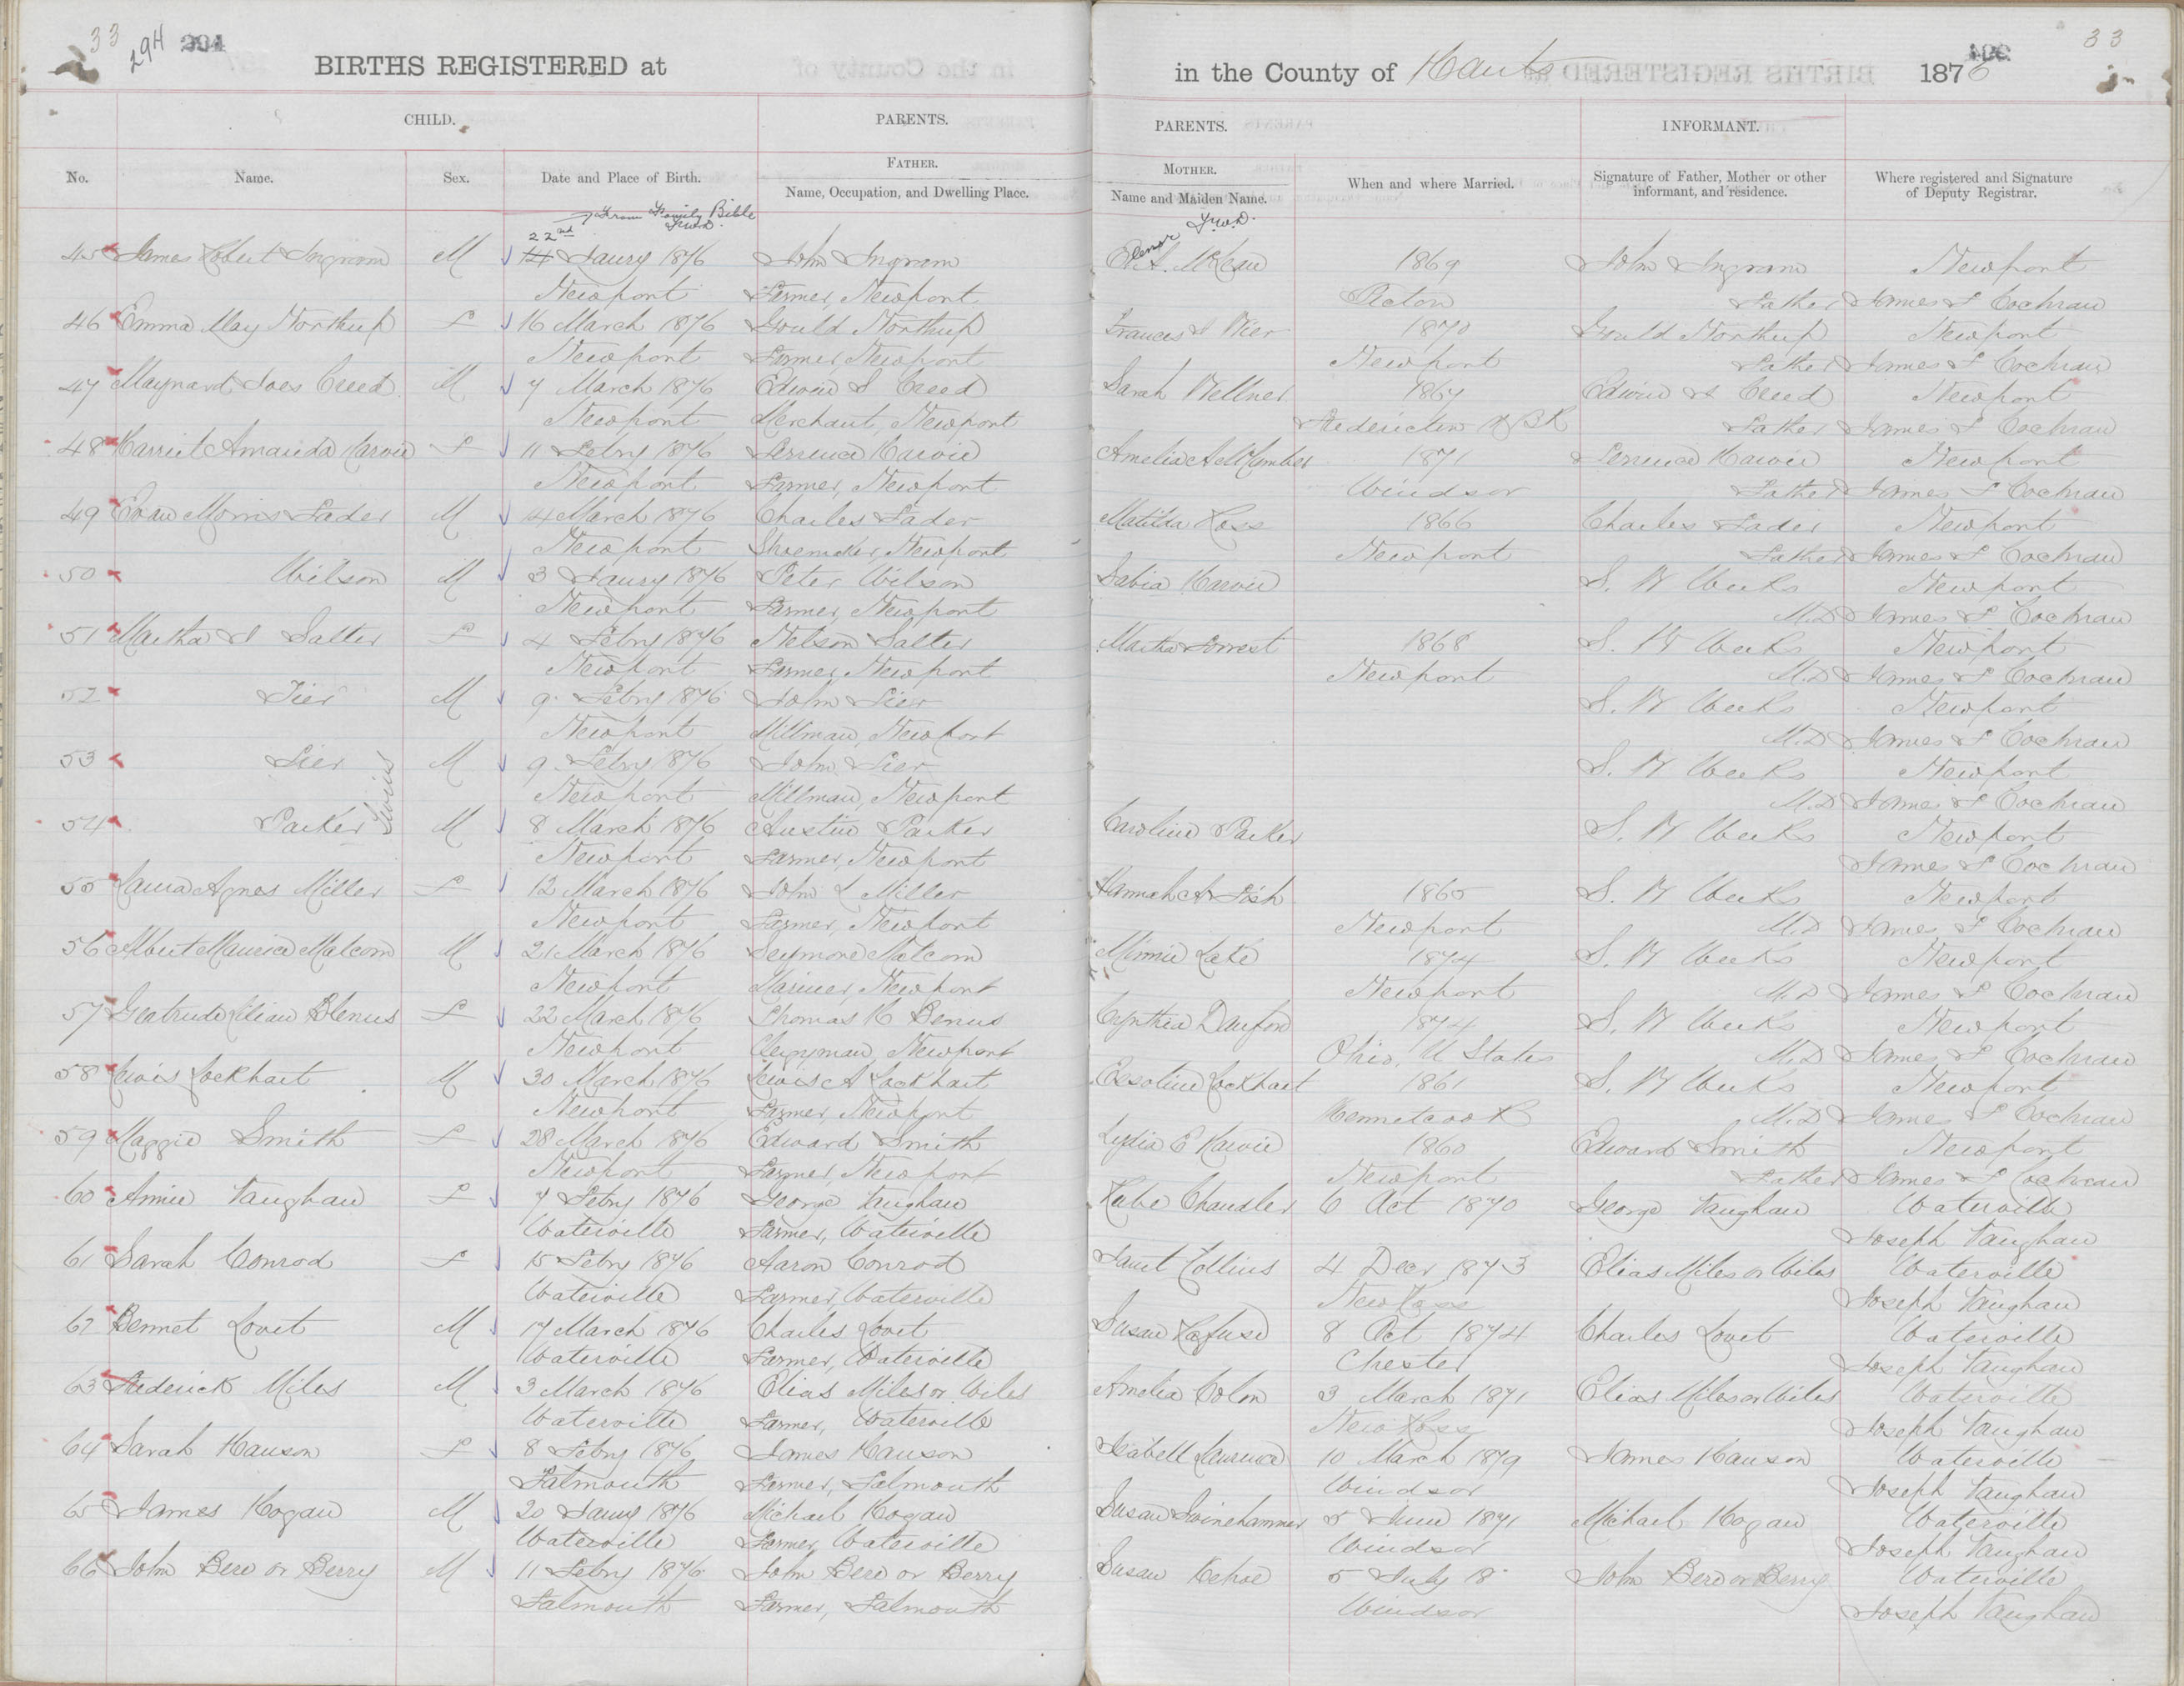 33
294
294
BIRTHS REGISTERED at
in the County of Hants
1876
33
CHILD.
PARENTS.
PARENTS.
INFORMANT.
No.
Name.
Sex.
Date and Place of Birth.
FATHER.
Name, Occupation, and Dwelling Place.
MOTHER.
Name and Maiden Name.
When and where Married.
Signature of Father, Mother or other informant, and residence.
Where registered and Signature of Deputy Registrar.
From Family Bible
22nd
45 James Robert Ingram M 14 Jaury 1876 John Ingram McLean 1869 John Ingram Newport
Newport Farmer, Newport Acton Father James F Cochran
46 Emma May Northup F 16 March 1876 Gould Northup Frances Wier 1870 Gould Northup Newport
Newport Farmer, Newport Newport Father James F Cochran
47 Maynard Creed M 7 March 1876 Edwin S Creed Sarah Wellner 1867 Edwin S Creed Newport
Newport Merchant, Newport Fredericton N BK Father James F Cochran
48 Harriet Amanda Harvie F 11 Febry 1876 Harvie Amelia A McCumber 1871 Harvie Newport
Newport Farmer, Newport Windsor Father James F Cochran
49 Evan Morris Fader M 14 March 1876 Charles Fader Matilda Ross 1866 Charles Fader Newport
Newport Shoemaker, Newport Newport Father James F Cochran
50 Wilson M 3 Jaury 1876 Peter Wilson Sabia Harvie S. W Weeks Newport
Newport Farmer, Newport M.D James F Cochran
51 Martha Salter F 4 Febry 1876 Nelson Salter Martha Forrest 1868 S. W Weeks Newport
Newport Farmer, Newport Newport M.D James F Cochran
52 Sier M 9 Febry 1876 John Sier S. W Weeks Newport
Newport Millman, Newport M.D James F Cochran
53 Sier M 9 Febry 1876 John Sier S. W Weeks Newport
Twins
Newport Millman, Newport M.D James F Cochran
54 Parker M 8 March 1876 Austin Parker Caroline Parker S. W Weeks Newport
Newport Farmer, Newport James F Cochran
55 Laura Agnes Miller F 12 March 1876 John L Miller Hannah A Fish 1865 S. W Weeks Newport
Newport Farmer, Newport Newport M.D James F Cochran
56 Albert Maurice Malcom M 21 March 1876 Seymore Malcom Minnie Lake 1874 S. W Weeks Newport
Newport Mariner, Newport Newport M.D James F Cochran
57 Gertrude Lilian Blenus F 22 March 1876 Thomas H Benus Cynthia Danford 1874 S. W Weeks Newport
Newport Clergyman, Newport Ohio, U States M.D James F Cochran
58 Lewis Lockhart M 30 March 1876 Lewis A Lockhart Lockhart 1861 S. W Weeks Newport
Newport Farmer, Newport Kennetcook M.D James F Cochran
59 Maggie Smith F 28 March 1876 Edward Smith Lydia E Harvie 1860 Edward Smith Newport
Newport Farmer, Newport Newport Father James F Cochran
60 Annie Vaughan F 7 Febry 1876 George Vaughan Kate Chandler 6 Oct 1870 George Vaughan Waterville
Waterville Farmer, Waterville Joseph Vaughan
61 Sarah Conrod F 15 Febry 1876 Aaron Conrod Janet Collins 4 Decr 1873 Elias Miles or Wiles Waterville
Waterville Farmer, Waterville New Ross Joseph Vaughan
62 Bennet Lovet M 17 March 1876 Charles Lovet Susan Rafuse 8 Oct 1874 Charles Lovet Waterville
Waterville Farmer, Waterville Chester Joseph Vaughan
63 Frederick Miles M 3 March 1876 Elias Miles or Wiles Amelia Colon 3 March 1871 Elias Miles or Wiles Waterville
Waterville Farmer, Waterville New Ross Joseph Vaughan
64 Sarah Hanson F 8 Febry 1876 James Hanson Isabell Laurence 10 March 1879 James Hanson Waterville
Falmouth Farmer, Falmouth Windsor Joseph Vaughan
65 James Hogan M 20 Jaury 1876 Michael Hogan Susan Swinehammer 5 June 1871 Michael Hogan Waterville
Waterville Farmer, Waterville Windsor Joseph Vaughan
66 John Bero or Berry M 11 Febry 1876 John Bero or Berry Susan Kehoe 5 July 18 John Bero or Berry Waterville
Falmouth Farmer, Falmouth Windsor Joseph Vaughan